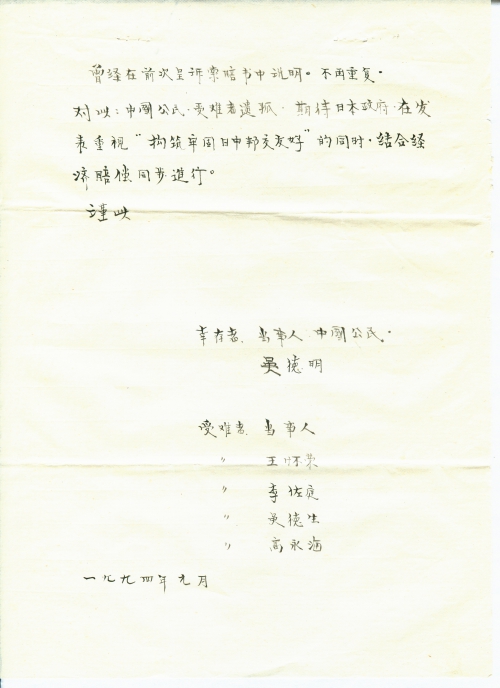 曾经在前次呈诉索赔书中说明。不再重复。
对此：中國公民·受难者遗孤·期待日本政府·在发
表重視“构筑牢固日中邦交友好”的同时·结合经
济賠償同步進行。
谨此
幸存者、当事人·中國公民·
吴德明
受难者、当事人
〃 王怀荣
〃 李佐庭
〃 吴德生
〃 高永海
一九九四年元月